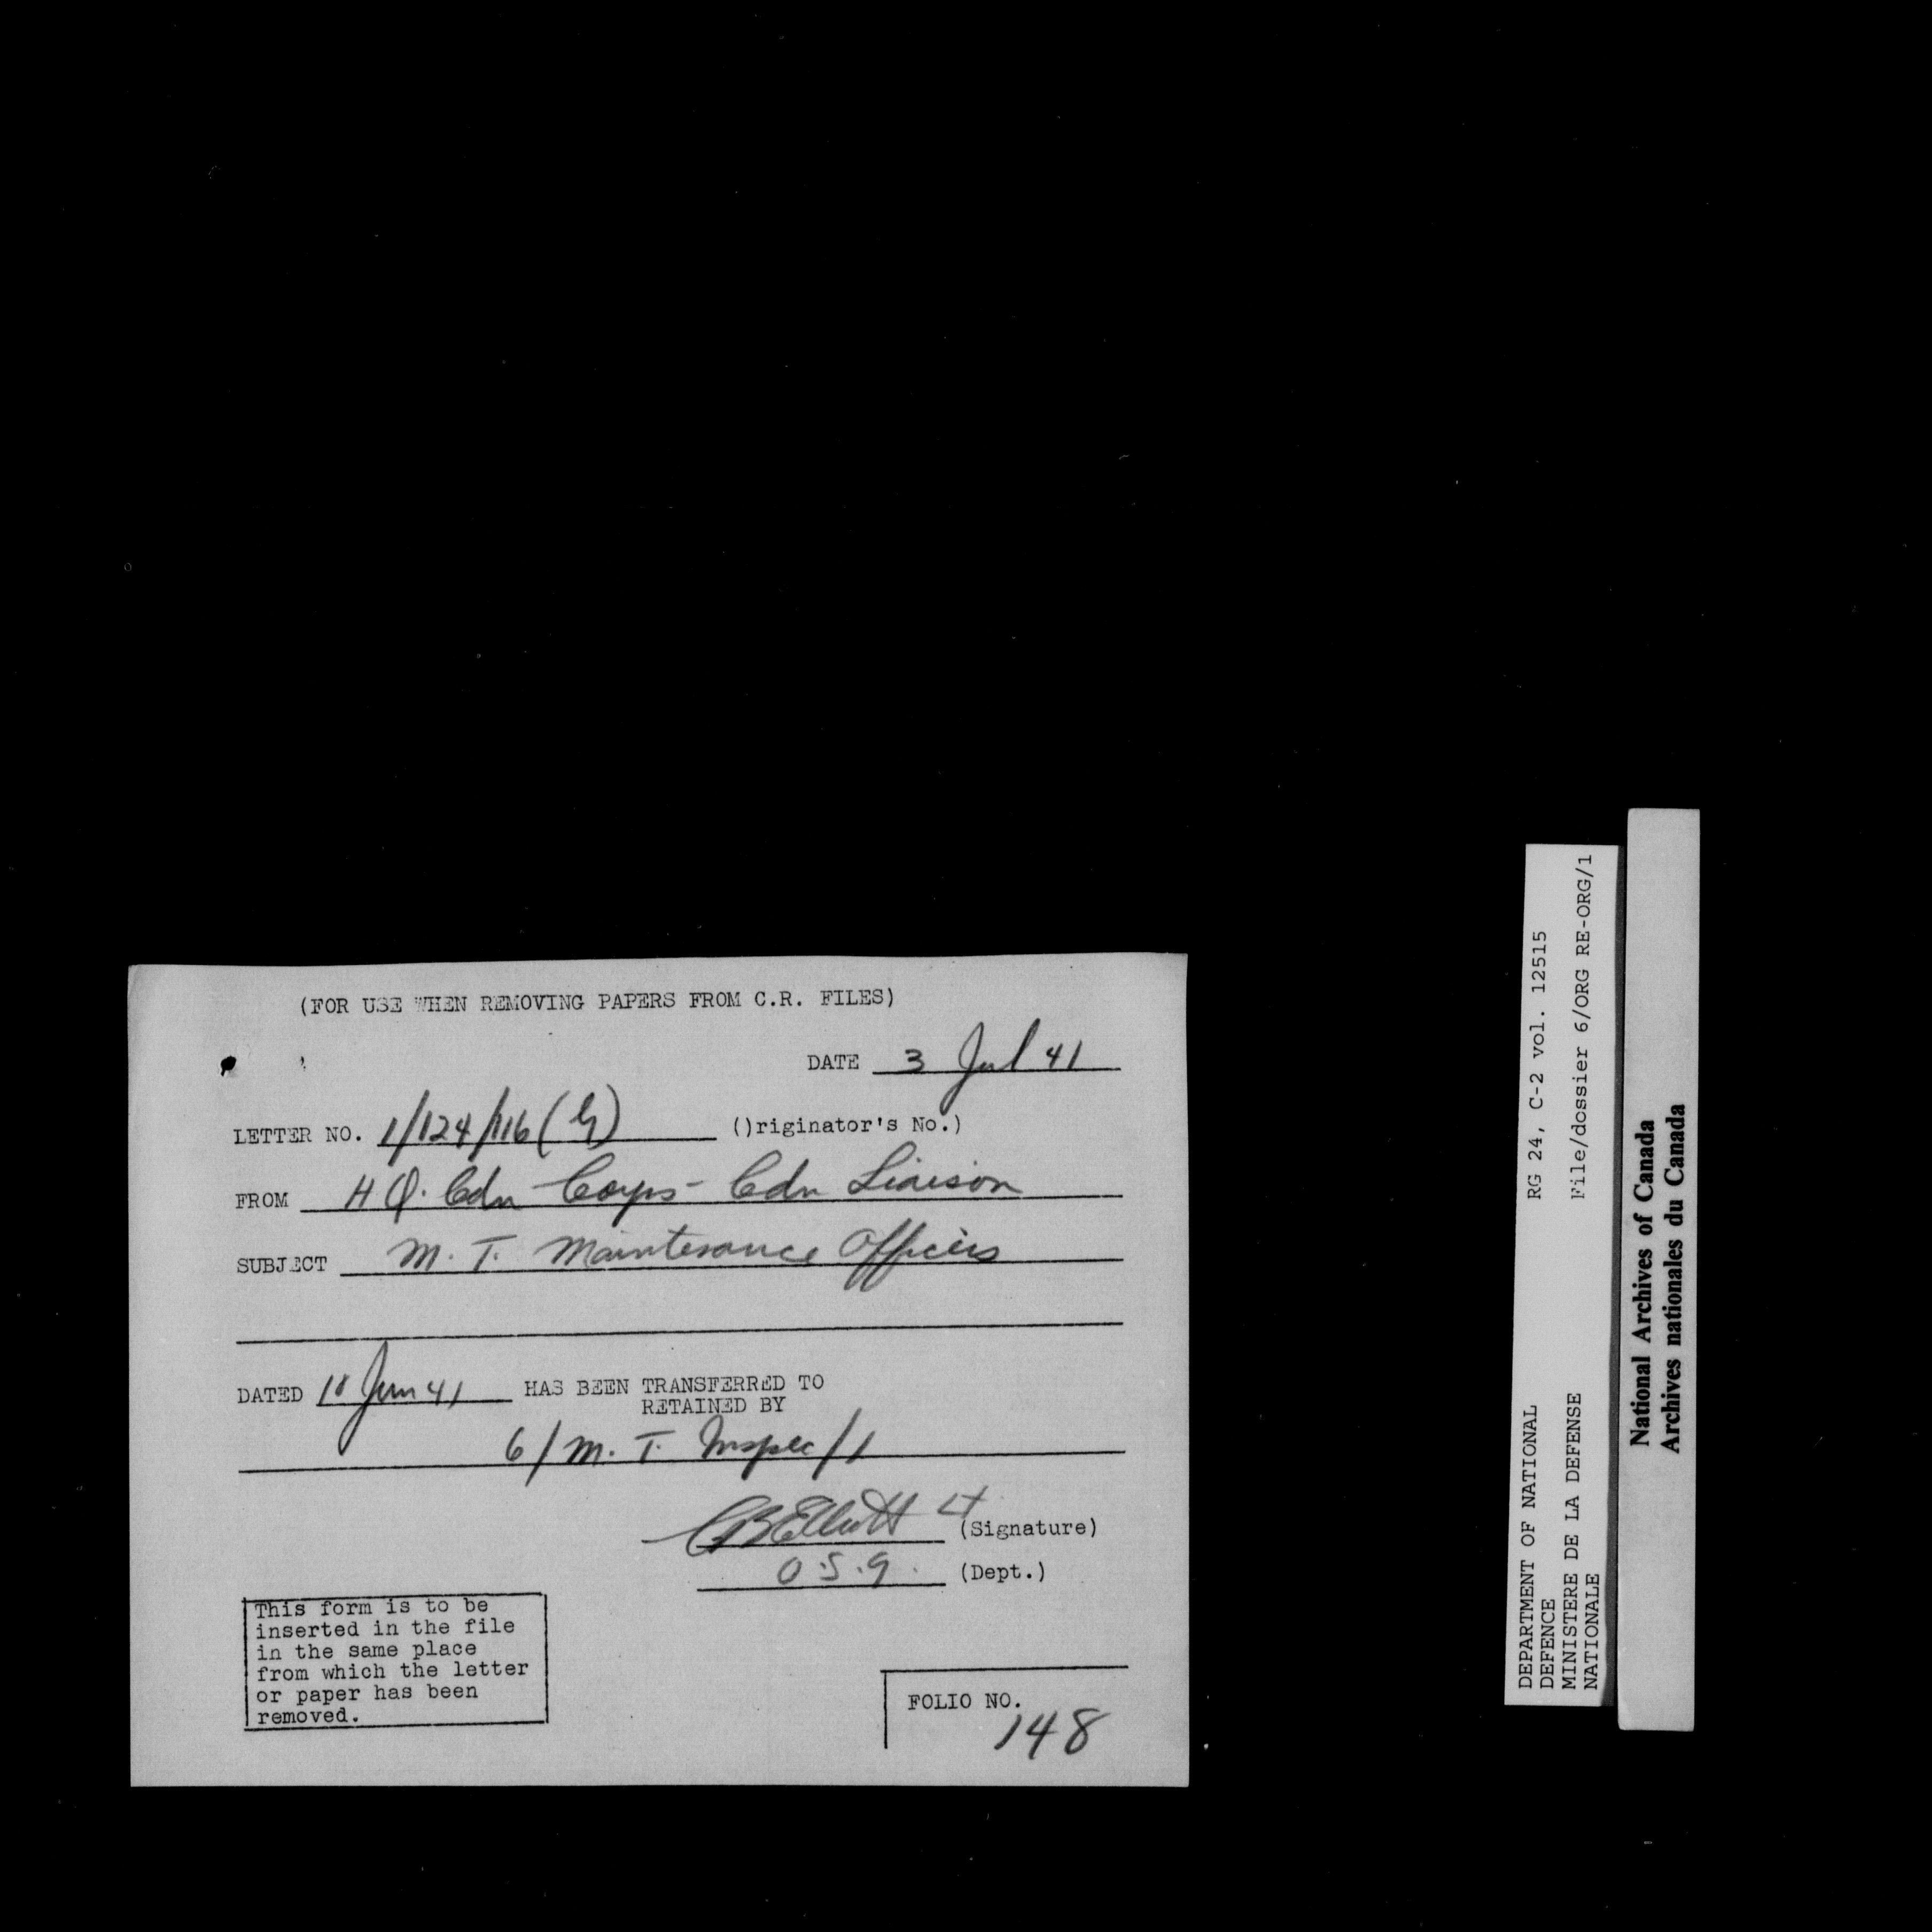 (FOR USE WHEN REMOVING PAPERS FROM C.R. FILES)
DATE 3 Jul 41
LETTER NO. 1/124/116 (G) ()riginator's No.)
FROM H Q. Cdn Corps - Cdn Liaison
SUBJECT M. T. Maintenance Officers
DATED 18 Jun 41 HAS BEEN TRANSFERRED TO
RETAINED BY
6/M. T. Inspec/1
CBElliott Lt
(Signature)
O.S.G. (Dept.)
This form is to be
inserted in the file
in the same place
from which the letter
or paper has been
removed.
FOLIO NO.
148
DEPARTMENT OF NATIONAL RG 24, C-2 vol. 12515
DEFENCE
MINISTERE DE LA DEFENSE File/dossier 6/ORG RE-ORG/1
NATIONALE
National Archives of Canada
Archives nationales du Canada